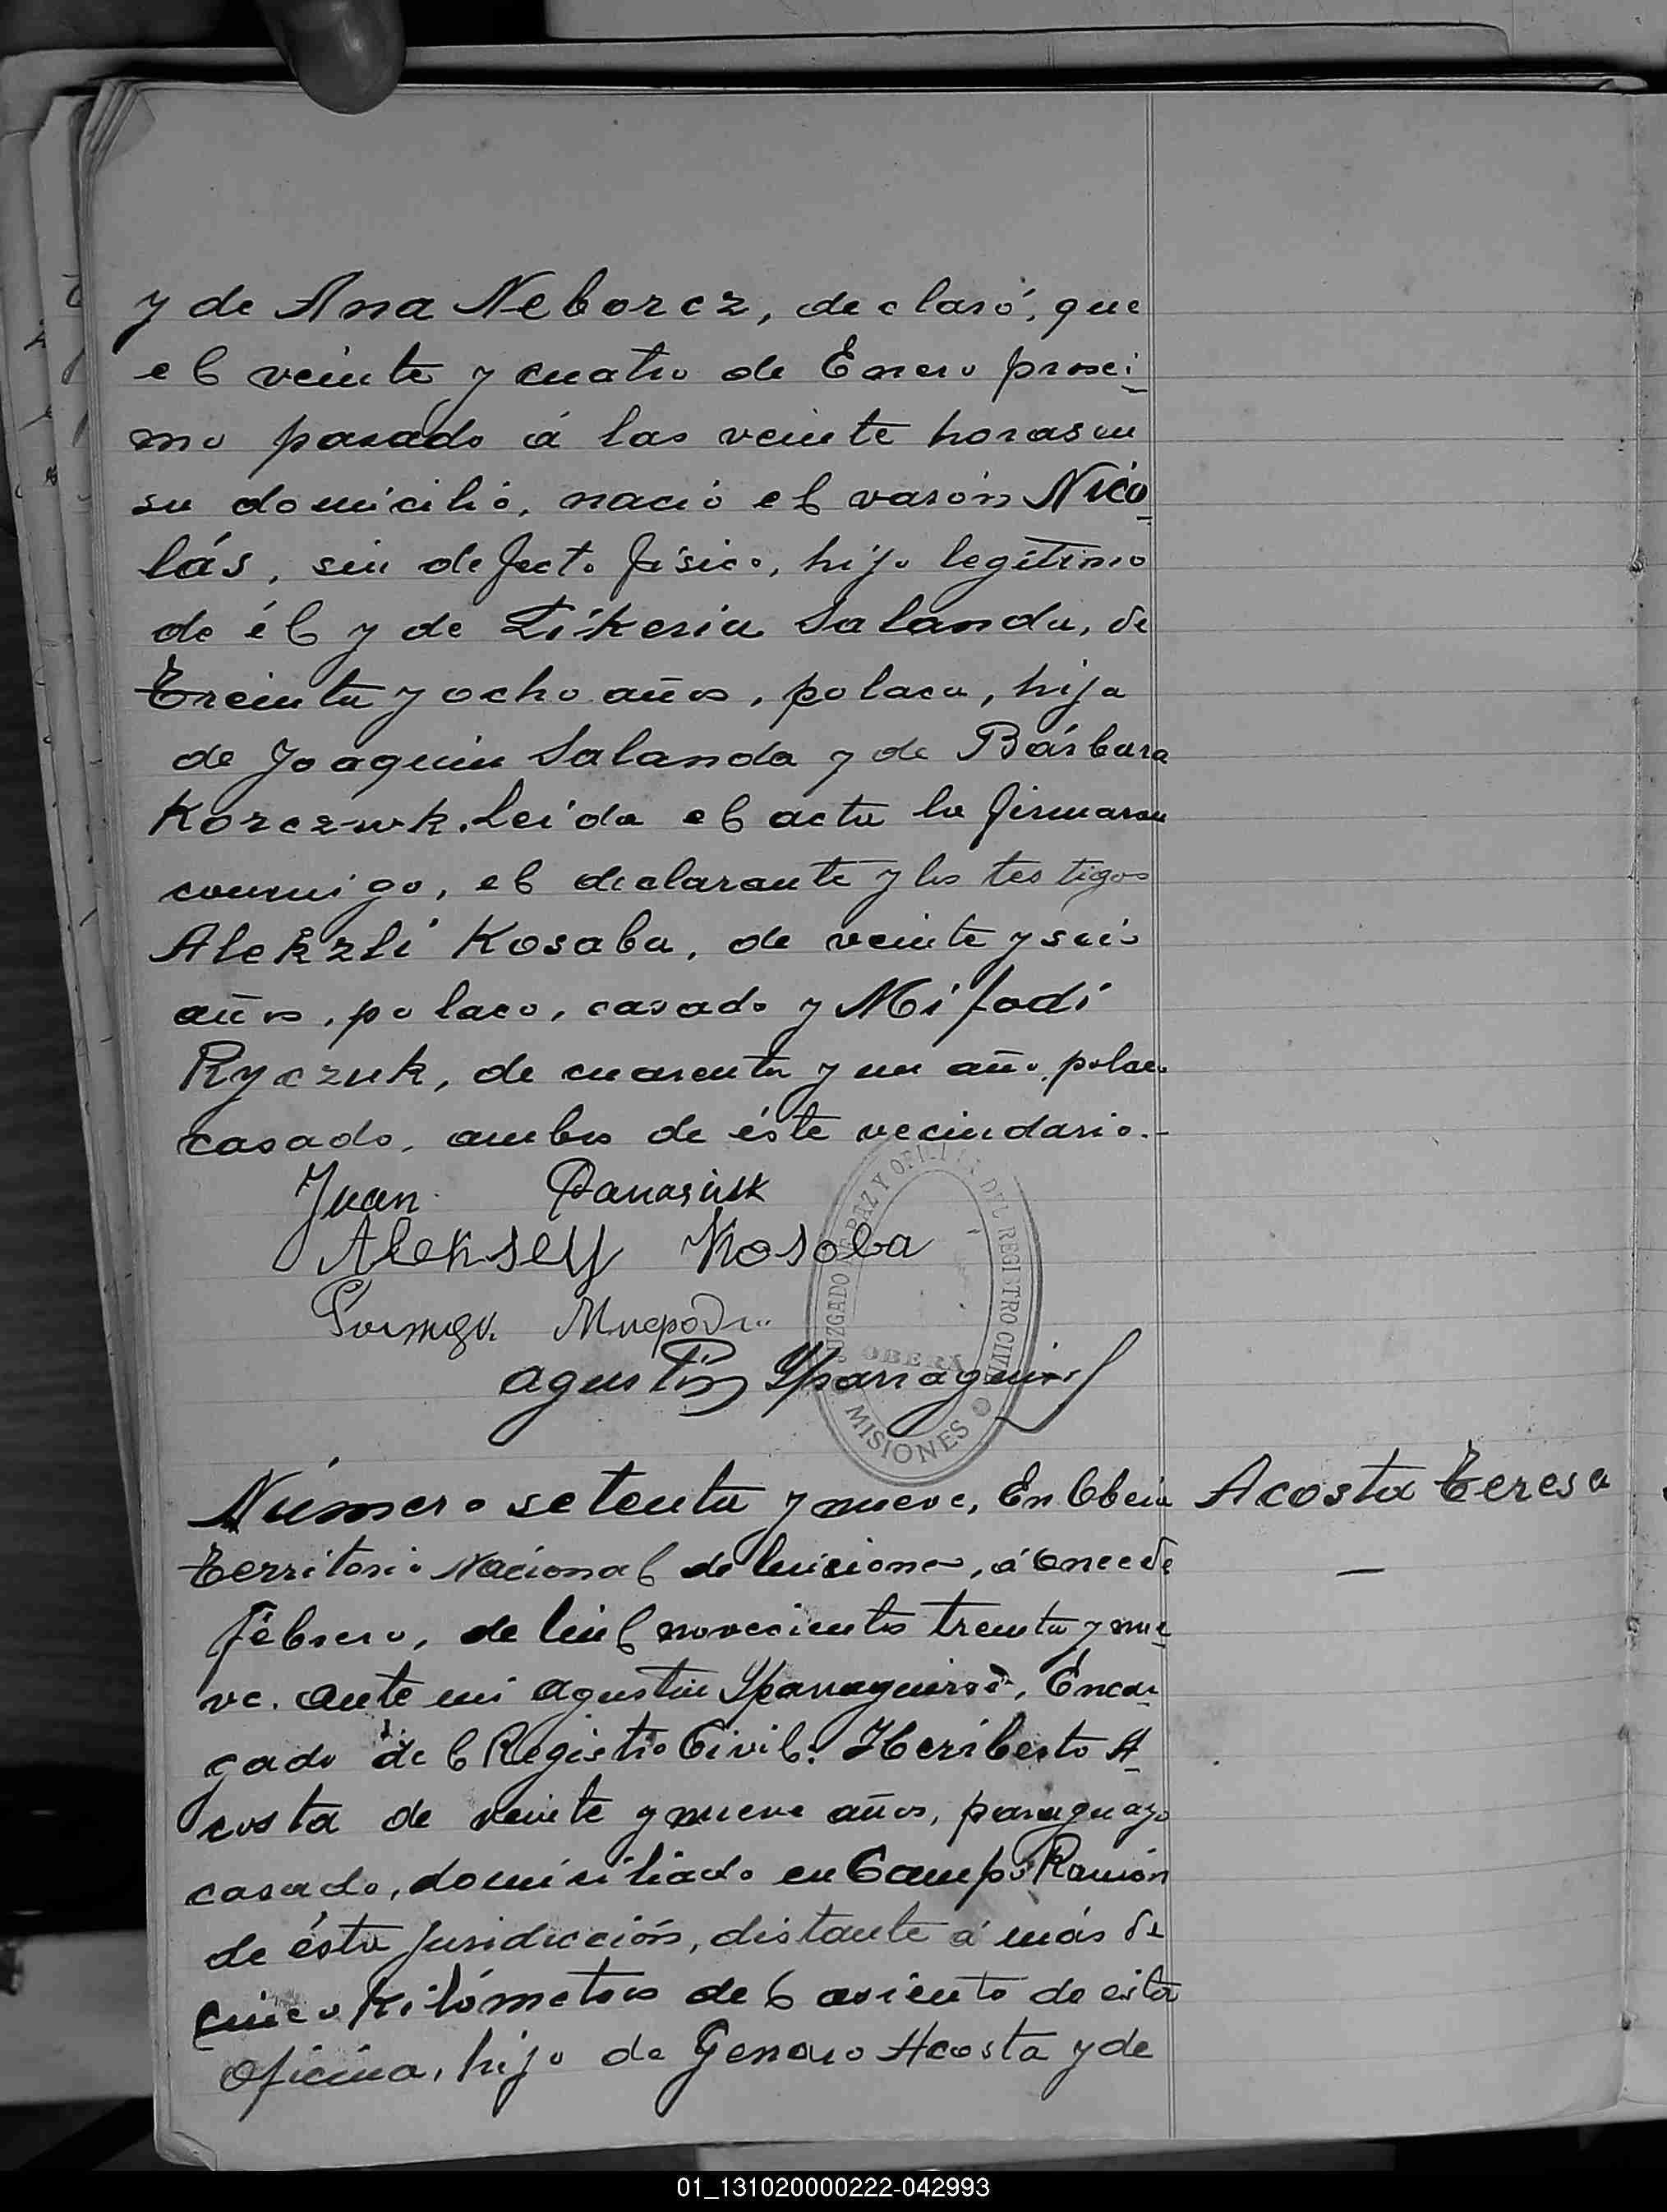 y de Ana Neborcz, declaró, que
el veinte y cuatro de Enero proxi-
mo pasado á las veinte horas en
su domicilio, nació el varón Nico-
lás, sin defecto físico, hijo legítimo
de él y de Likeria Salanda, de
Treinta y ocho años, polaca, hija
de Joaquin Salanda y de Bárbara
Korczwk. Leida el acta la firmaron
conmigo, el declarante y los testigos
Alekzli Kosaba, de veinte y seis
años, polaco, casado y Mifodi
Ryczuk, de cuarenta y un año, polaco
casado, ambos de éste vecindario.-
Juan Panasiuk
Aleksey Kosoba
Agustin Yparraguirre
JUZGADO DE PAZ Y OFICINA DEL REGISTRO CIVIL
OBERÁ
MISIONES
Número setenta y nueve, En Oberá
Territorio Nacional de Misiones, á Once de
Febrero, de Mil novecientos treinta y nue-
ve. Ante mi Agustin Yparraguirre, Encar-
gado del Registro Civil: Heriberto A-
costa de veinte y nueve años, paraguayo
casado, domiciliado en Campo Ramón
de ésta Jurisdicción, distante á más de
Cinco Kilómetros del asiento de esta
Oficina, hijo de Genaro Acosta y de
Acosta Teresa
—
01_131020000222-042993